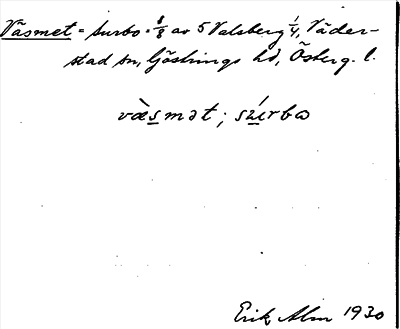 Väsmet = Surbo = 1/8 av 5 Valsberg 1/4, Väder-
stad sn, Göstrings hd, Österg. l.
väsmət; surbω
Erik Alm 1930